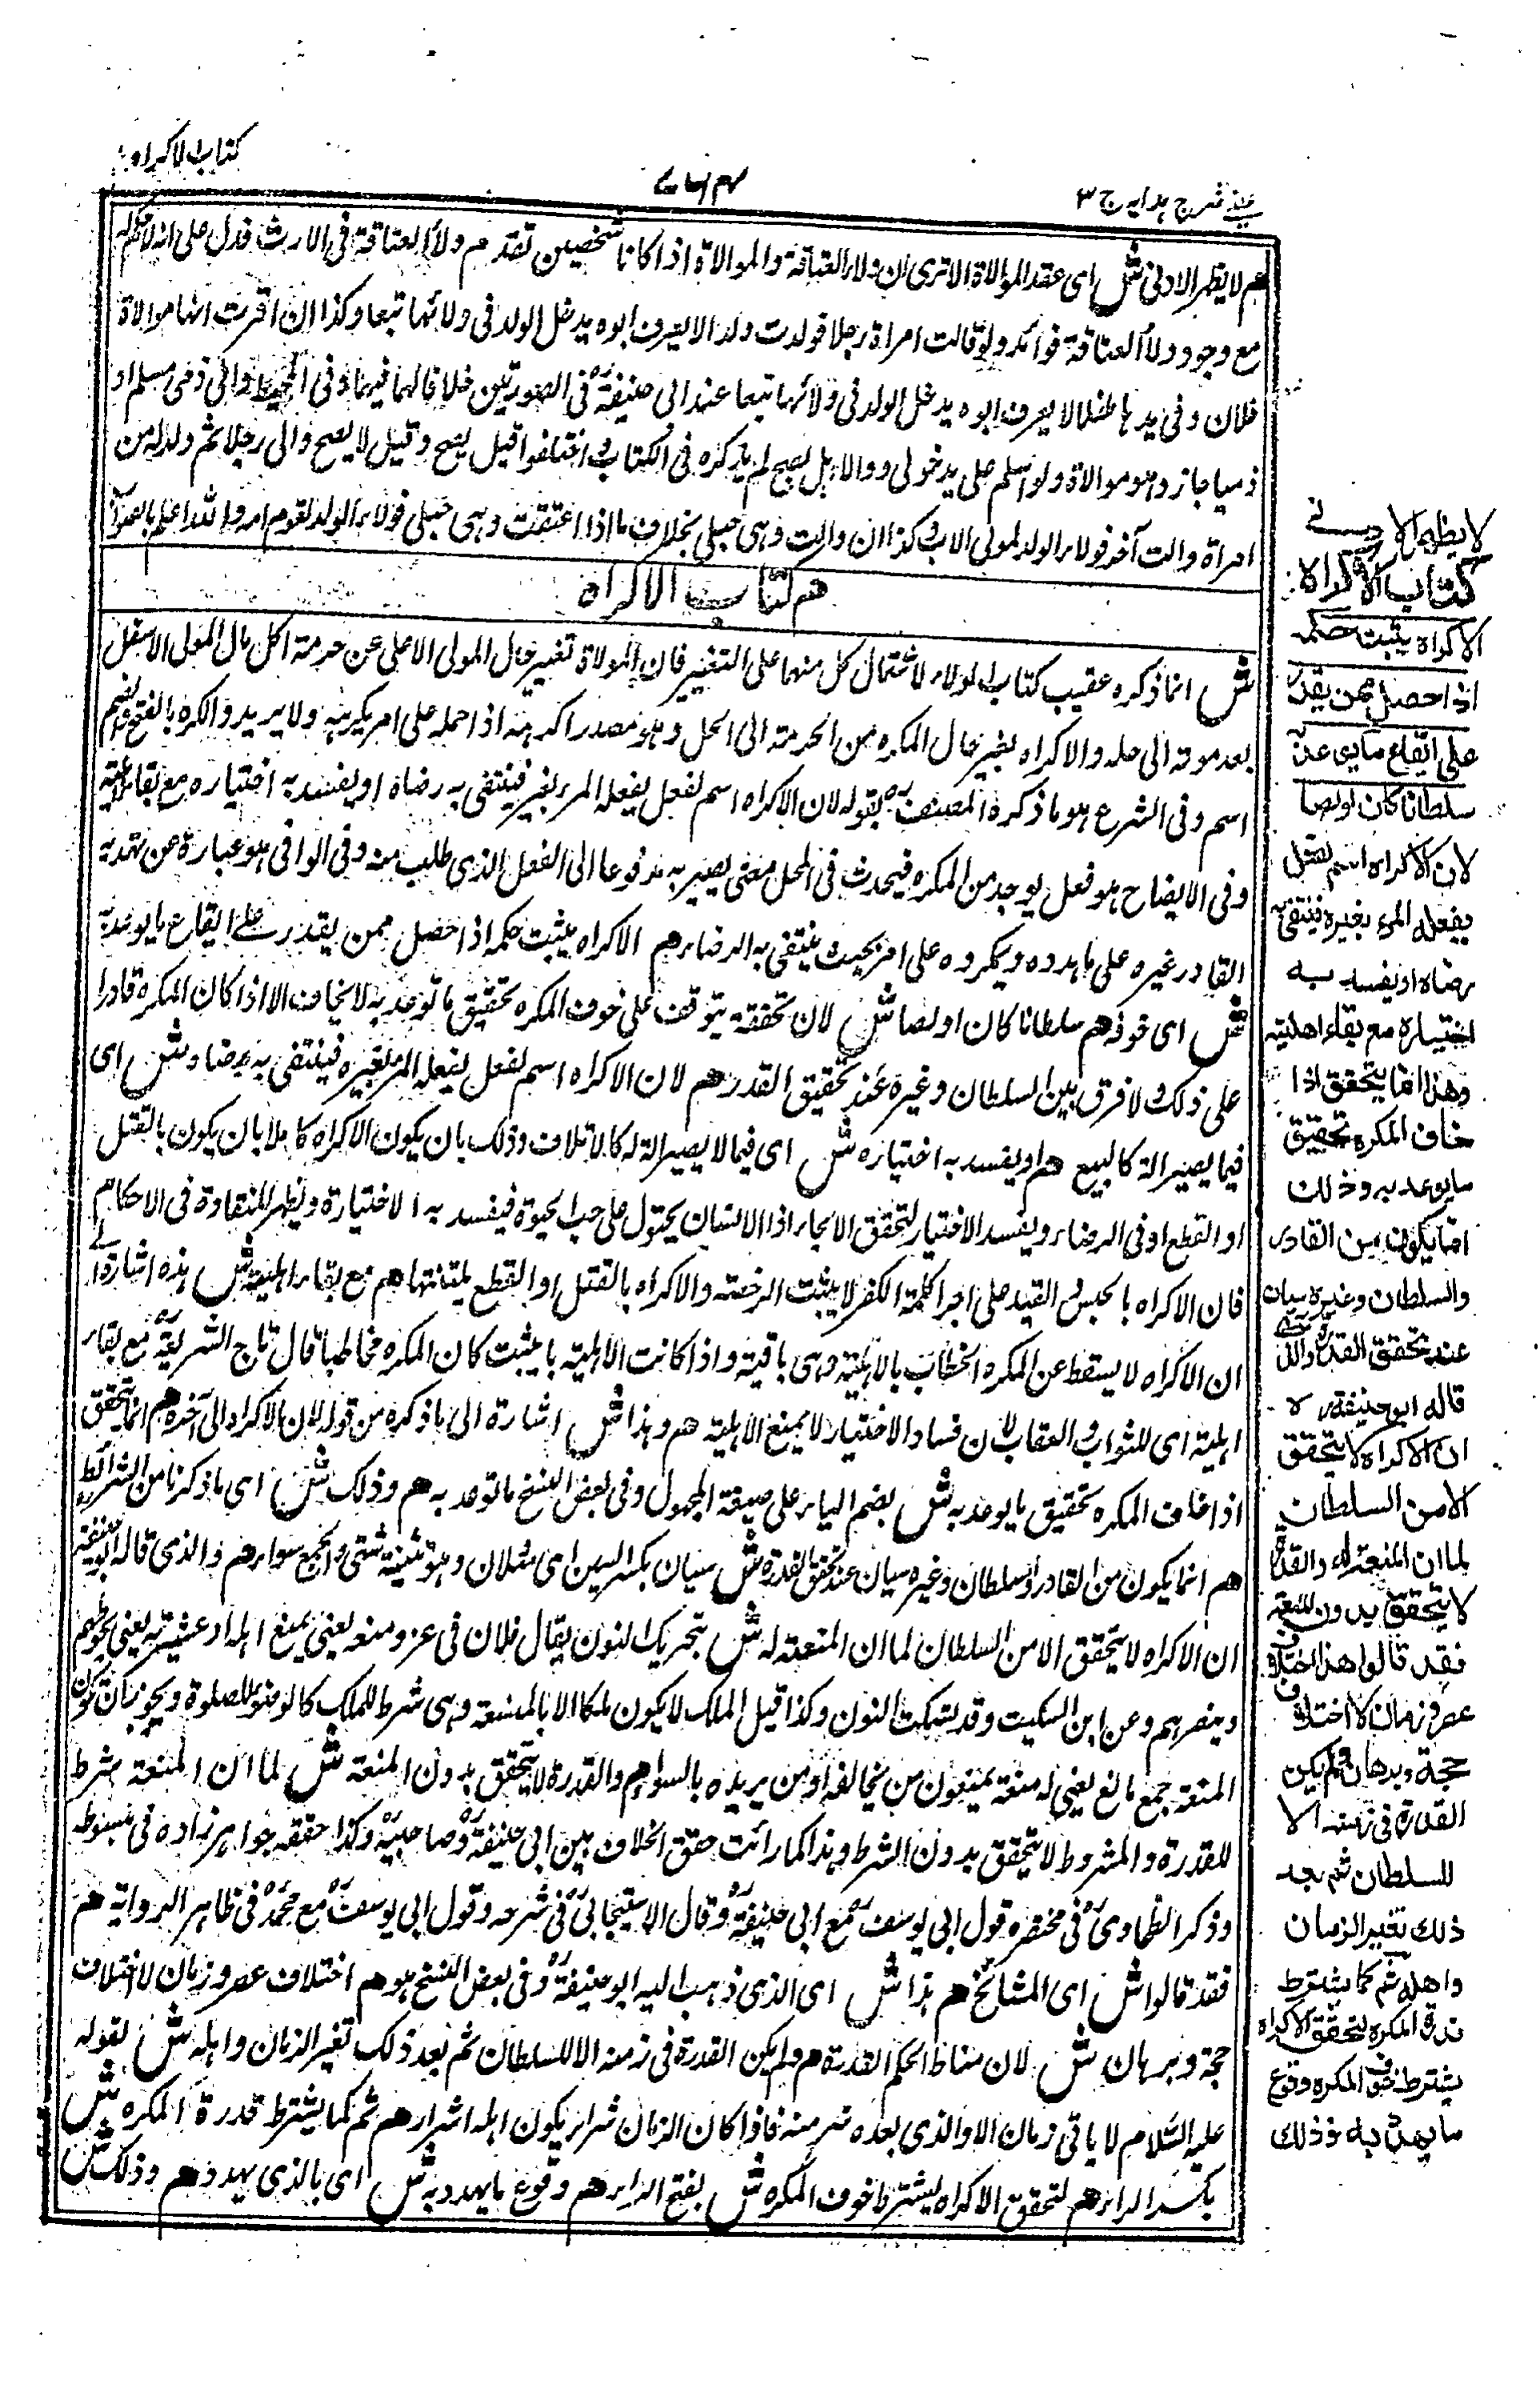 كتاب الاكراه
عينى شرح هدايه ج ٣
هم لا يظهر الادنى ش اى عقد الموالاة الا ترى ان ولاء العتاقة والموالاة اذا كانا شخصين تقدم ولاء العتاقة فى الارث فدل على انه
مع وجود ولاء العتاقة فوائد ولو قالت امراة رجلا فولدت ولدا لا يعرف ابوه يدخل الولد فى ولائها تبعا وكذا ان اقرت انها مولاة
فلان وفى يدها طفل لا يعرف ابوه يدخل الولد فى ولائها تبعا عند ابى حنيفة فى الصورتين خلافا لهما فيهما وفى المحيط والى ذمى مسلم او
ذميا جاز وهو موالاة ولو اسلم على يد حربى ووالاه هل يصح لم يذكره فى الكتاب واختلفوا قيل يصح وقيل لا يصح والى رجلا ثم ولد له من
امراة والت آخر فولاء الولد لمولى الاب وكذا ان والت وهى حبلى بخلاف ما اذا اعتقت وهى حبلى فولاء الولد لقوم امه والله اعلم بالصواب
هم كتاب الاكراه
ش انما ذكره عقيب كتاب الولاء لاشتمال كل منهما على التغيير فان الموالاة تغيير حال المولى الاعلى عن حرمة اكل مال المولى الاسفل
بعد موته الى حله والاكراه يغير حال المكره من الحرمة الى الحل وهو مصدر اكرهه اذا حمله على امر يكرهه ولا يريد والكره بالفتح
اسم وفى الشرع هو ما ذكره المصنف بقوله لان الاكراه اسم لفعل يفعله المرء بغيره فينتفى به رضاه او يفسد به اختياره مع بقاء اهليته
وفى الايضاح هو فعل يوجد من المكره فيحدث فى المحل معنى يصير به مدفوعا الى الفعل الذى طلب منه وفى الوافى هو عبارة عن تهديد
القادر غيره على ما هدده ويكره على امر بحيث ينتفى به الرضاء هم الاكراه يثبت حكمه اذا حصل ممن يقدر على ايقاع ما يوعد به
ش اى خوفه هم سلطانا كان او لصا ش لان تحققه يتوقف على خوف المكره تحقيق ما توعد به لا يخاف الا اذا كان المكره قادرا
على ذلك ولا فرق بين السلطان وغيره عند تحقيق القدر هم لان الاكراه اسم لفعل يفعله المرء بغيره فينتفى به رضاه ش اى
فيما يصير الة كالبيع هم او يفسد به اختياره ش اى فيما لا يصير الة له كالاتلاف وذلك بان يكون الاكراه كاملا بان يكون بالقتل
او القطع او فى الرضاء ويفسد الاختيار لتحقق الالجاء اذا الانسان مجبول على حب الحيوة فيفسد به الاختيارة ويظهر للتفاوة فى الاحكام
فان الاكراه بالحبس والقيد على اجراء كلمة الكفر لا يثبت الرخصة والاكراه بالقتل او القطع يثبتها هم مع بقاء اهليته ش هذه اشارة الى
ان الاكراه لا يسقط عن المكره الخطاب بالاهلية وهى باقية واذا كانت الاهلية باثبت كان المكره مخاطبا قال تاج الشريعة مع بقاء
اهليته اى للثواب والعقاب لان فساد الاختيار لا يمنع الاهلية هم وهذا ش اشارة الى ما ذكره من قوله لان الاكراه الى آخره هم انما يتحقق
اذا خاف المكره تحقيق ما يوعد به ش بضم الياء على صيغة المجهول وفى بعض النسخ ما توعد به هم وذلك ش اى ما ذكرنا من الشرائط
هم انما يكون من القادر والسلطان وغيره سيان عند تحقق القدرة ش سيان بكسر السين اى مثلان وهو تثنية سى والجمع سواء هم والذى قاله ابو حنيفة
ان الاكراه لا يتحقق الا من السلطان لما ان المنعة له ش بتحريك النون يقال فلان فى عز ومنعة يعنى يمنع اهله او عشيرته يعنى يحوطهم
وينصرهم وعن ابن السكيت وقد تسكن النون وكذا قيل الملك لا يكون ملكا الا بالمنعة وهى شرط للملك كالوضوء للصلوة ويجوز ان تكون
المنعة جمع مانع يعنى له منعة يمنعون من يخالفه او من يريده بالسوء هم والقدرة لا يتحقق بدون المنعة ش لما ان المنعة شرط
للقدرة والمشروط لا يتحقق بدون الشرط وهذا كما رائت حقق الخلاف بين ابى حنيفة وصاحبيه وكذا حققه جواهر زاده فى مبسوطه
وذكر الطحاوى فى مختصره قول ابى يوسف مع ابى حنيفة وقال الاسبيجابى فى شرحه وقول ابى يوسف مع محمد فى ظاهر الرواية هم
فقد قالوا ش اى المشائخ هم هذا ش اى الذى ذهب اليه ابو حنيفة وفى بعض النسخ هو هم اختلاف عصر وزمان لا اختلاف
حجة وبرهان ش لان مناط الحكم القدرة هم ولم يكن القدرة فى زمنه الا للسلطان ثم بعد ذلك تغير الزمان واهله ش لقوله
عليه السلام لا ياتى زمان الا والذى بعده شر منه فاذا كان الزمان شرا يكون اهله اشرار هم ثم كما يشترط قدرة المكره ش
بكسر الراء هم لتحقق الاكراه يشترط خوف المكره ش بفتح الراء هم وقوع ما يهدد به ش اى بالذى يهدد هم وذلك ش
لا يظهر الادنى
كتاب الاكراه
الاكراه يثبت حكمه
اذا حصل ممن يقدر
على ايقاع ما يوعد به
سلطانا كان او لصا
لان الاكراه اسم لفعل
يفعله المرء بغيره فينتفى به
رضاه او يفسد به
اختياره مع بقاء اهليته
وهذا انما يتحقق اذا
خاف المكره تحقيق
ما يوعد به وذلك
انما يكون من القادر
والسلطان وغيره سيان
عند تحقق القدرة والذى
قاله ابو حنيفة
ان الاكراه لا يتحقق
الا من السلطان
لما ان المنعة له والقدرة
لا يتحقق بدون المنعة
فقد قالوا هذا اختلاف
عصر وزمان لا اختلاف
حجة وبرهان ولم يكن
القدرة فى زمنه الا
للسلطان ثم بعد
ذلك تغير الزمان
واهله ثم كما يشترط
قدرة المكره لتحقق الاكراه
يشترط خوف المكره وقوع
ما يهدد به وذلك